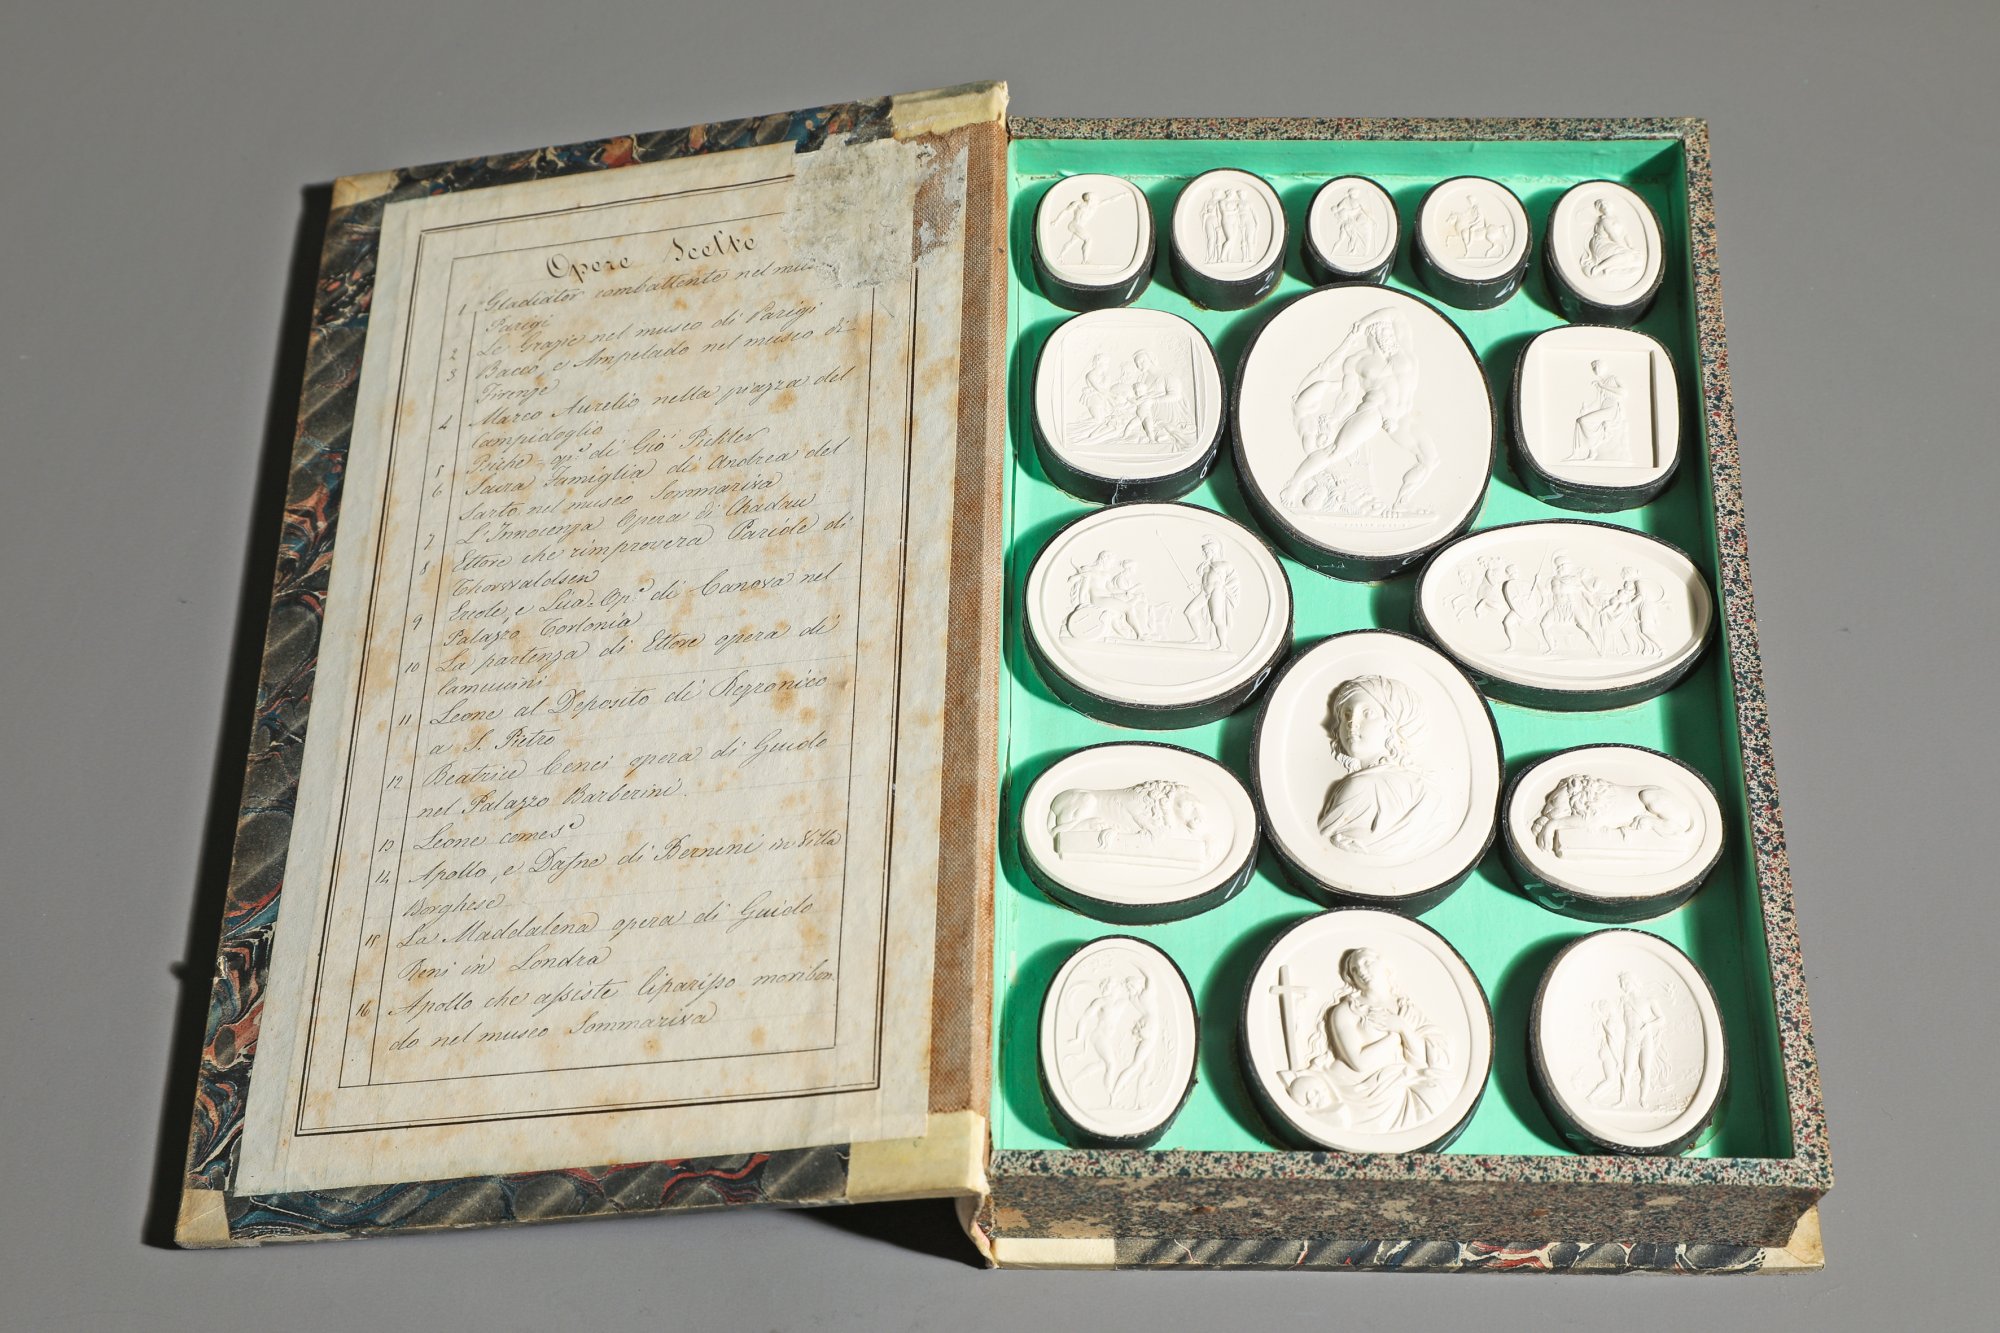 Opere Scelte
1 Gladiator combattente nel mus
Parigi
2 Le Grazie nel museo di Parigi
3 Bacco, e Ampelado nel museo di
Firenze
4 Marco Aurelio nella piazza del
Campidoglio
5 Psiche op.ª di Gio Pichler
6 Sacra Famiglia di Andrea del
Sarto nel museo Sommariva
7 L'Innocenza Opera di Chadau
8 Ettore che rimprovera Paride di
Thorvvaldsen
9 Ercole, e Lica Op.ª di Canova nel
Palazzo Torlonia
10 La partenza di Ettore opera di
Camuccini
11 Leone al Deposito di Rezzonico
a S. Pietro
12 Beatrice Cenci opera di Guido
nel Palazzo Barberini.
13 Leone come s.ª
14 Apollo, e Dafne di Bernini in Villa
Borghese
15 La Maddalena opera di Guido
Reni in Londra
16 Apollo che assiste Ciparisso moribon
do nel museo Sommariva
1
2
4